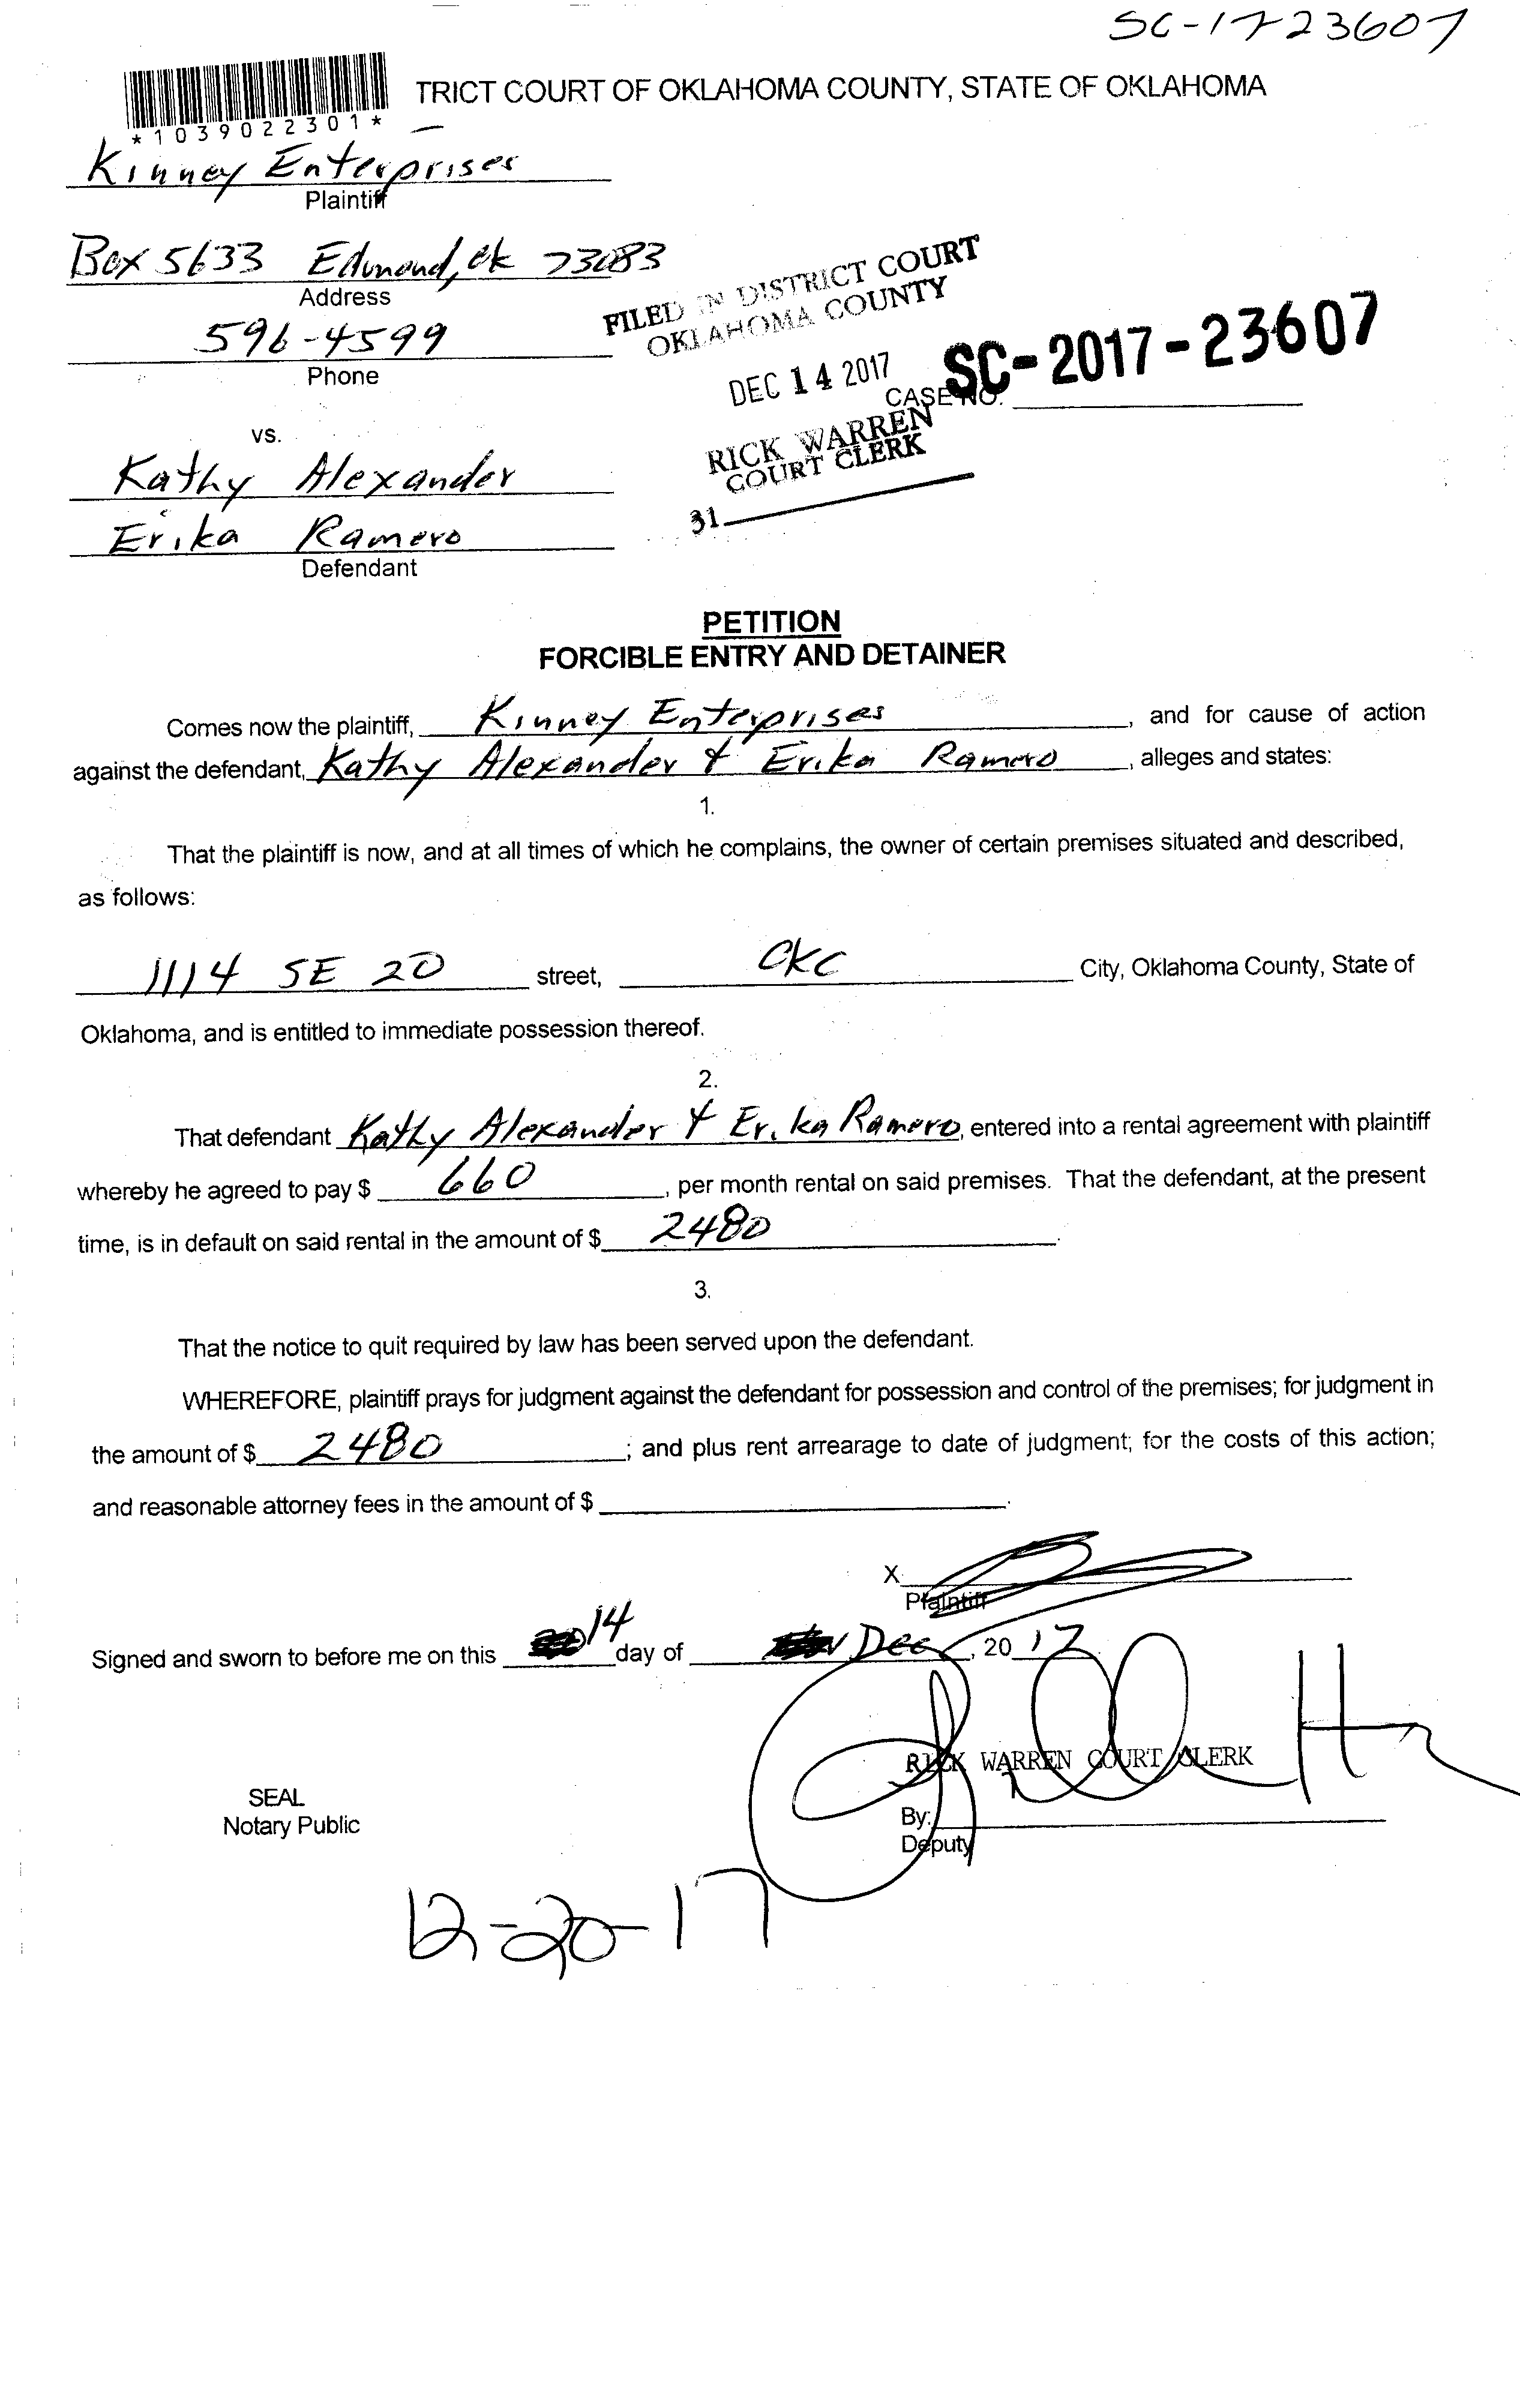 SC-1723607
TRICT COURT OF OKLAHOMA COUNTY, STATE OF OKLAHOMA
*1039022301*
Kinney Enterprises
Plaintiff
Box 5633 Edmond, Ok 73083
Address
596-4599
Phone
FILED IN DISTRICT COURT
OKLAHOMA COUNTY
DEC 14 2017
SC-2017-23607
CASE NO.
RICK WARREN
COURT CLERK
31
vs.
Kathy Alexander
Erika Ramero
Defendant
PETITION
FORCIBLE ENTRY AND DETAINER
Comes now the plaintiff, Kinney Enterprises, and for cause of action
against the defendant, Kathy Alexander & Erika Ramero, alleges and states:
1.
That the plaintiff is now, and at all times of which he complains, the owner of certain premises situated and described,
as follows:
1114 SE 20 street, OKC City, Oklahoma County, State of
Oklahoma, and is entitled to immediate possession thereof.
2.
That defendant Kathy Alexander & Erika Ramero, entered into a rental agreement with plaintiff
whereby he agreed to pay $ 660, per month rental on said premises. That the defendant, at the present
time, is in default on said rental in the amount of $ 2480.
3.
That the notice to quit required by law has been served upon the defendant.
WHEREFORE, plaintiff prays for judgment against the defendant for possession and control of the premises; for judgment in
the amount of $ 2480; and plus rent arrearage to date of judgment; for the costs of this action;
and reasonable attorney fees in the amount of $ .
X
Plaintiff
Signed and sworn to before me on this 14 day of Dec, 2017
RICK WARREN COURT CLERK
SEAL
Notary Public
By:
Deputy
12-20-17